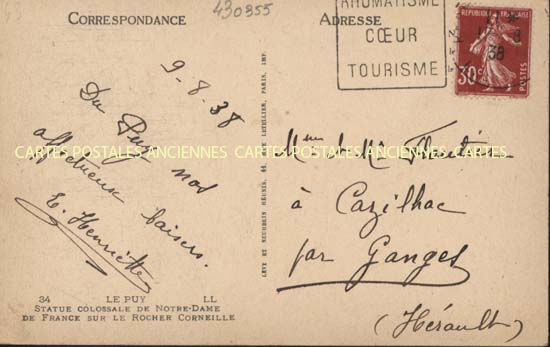 CORRESPONDANCE
430355
ADRESSE
RHUMATISME
CŒUR
TOURISME
RÉPUBLIQUE FRANÇAISE
30c
38
9-8-38
Du Puy nos
affectueux baisers.
E. Henriette
CARTES POSTALES ANCIENNES CARTES POSTALES ANCIENNES CARTES
LÉVY ET NEURDEIN RÉUNIS, 44, RUE LETELLIER, PARIS, IMP.
à
Cazilhac
par Ganges
(Hérault)
34 LE PUY LL
STATUE COLOSSALE DE NOTRE-DAME
DE FRANCE SUR LE ROCHER CORNEILLE